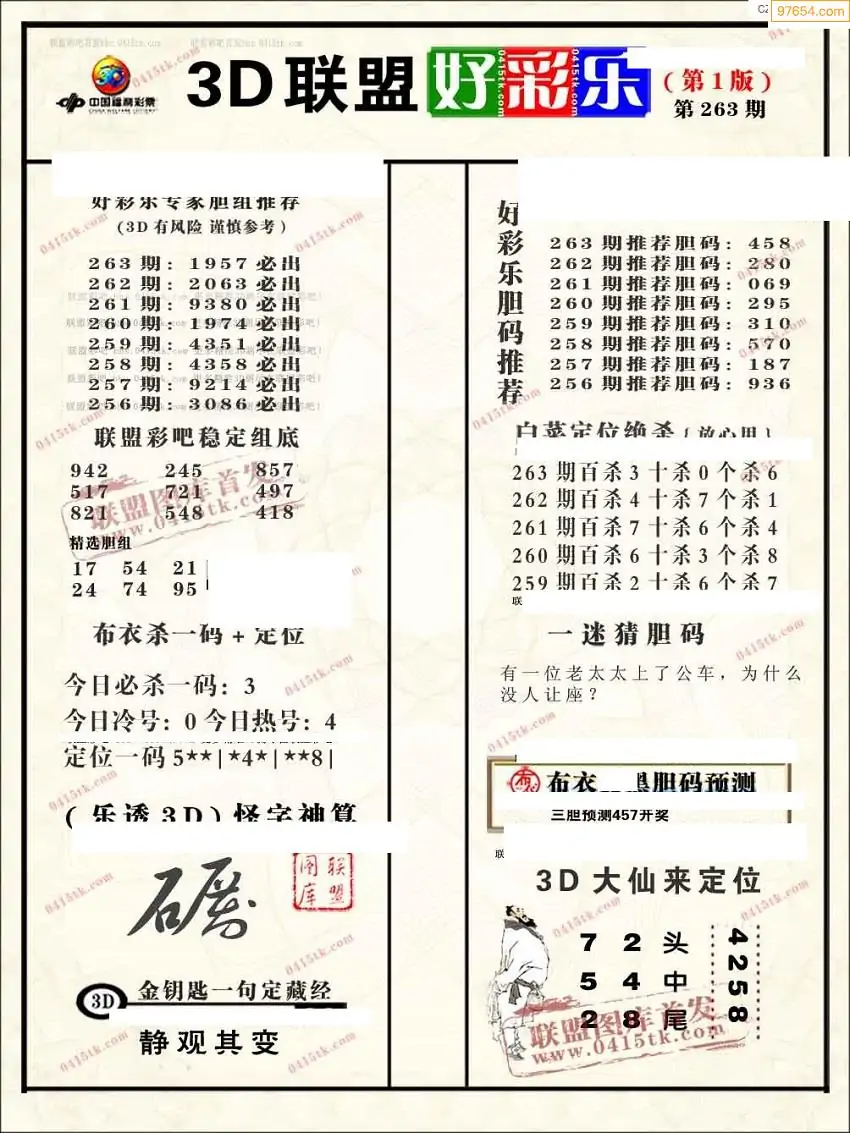 97654.com
中国福利彩票
CHINA WELFARE LOTTERY
3D联盟好彩乐
0415tk.com
0415tk.com
(第1版)
第263期
好彩乐专家胆组推荐
(3D有风险 谨慎参考)
263期: 1957必出
262期: 2063必出
261期: 9380必出
260期: 1974必出
259期: 4351必出
258期: 4358必出
257期: 9214必出
256期: 3086必出
联盟彩吧稳定组底
942 245 857
517 721 497
821 548 418
联盟图库首发
www.0415tk.com
精选胆组
17 54 21
24 74 95
布衣杀一码+定位
今日必杀一码: 3
今日冷号: 0 今日热号: 4
定位一码 5**|*4*|**8|
(乐透3D)怪字神算
联盟图库
3D
金钥匙一句定藏经
静观其变
好彩乐胆码推荐
263期推荐胆码: 458
262期推荐胆码: 280
261期推荐胆码: 069
260期推荐胆码: 295
259期推荐胆码: 310
258期推荐胆码: 570
257期推荐胆码: 187
256期推荐胆码: 936
白菜定位绝杀{放心用}
263期百杀3十杀0个杀6
262期百杀4十杀7个杀1
261期百杀7十杀6个杀4
260期百杀6十杀3个杀8
259期百杀2十杀6个杀7
联
一迷猜胆码
有一位老太太上了公车，为什么
没人让座？
布衣
胆码预测
三胆预测457开奖
联
3D大仙来定位
7 2 头
5 4 中
2 8 尾
4258
联盟图库首发
www.0415tk.com